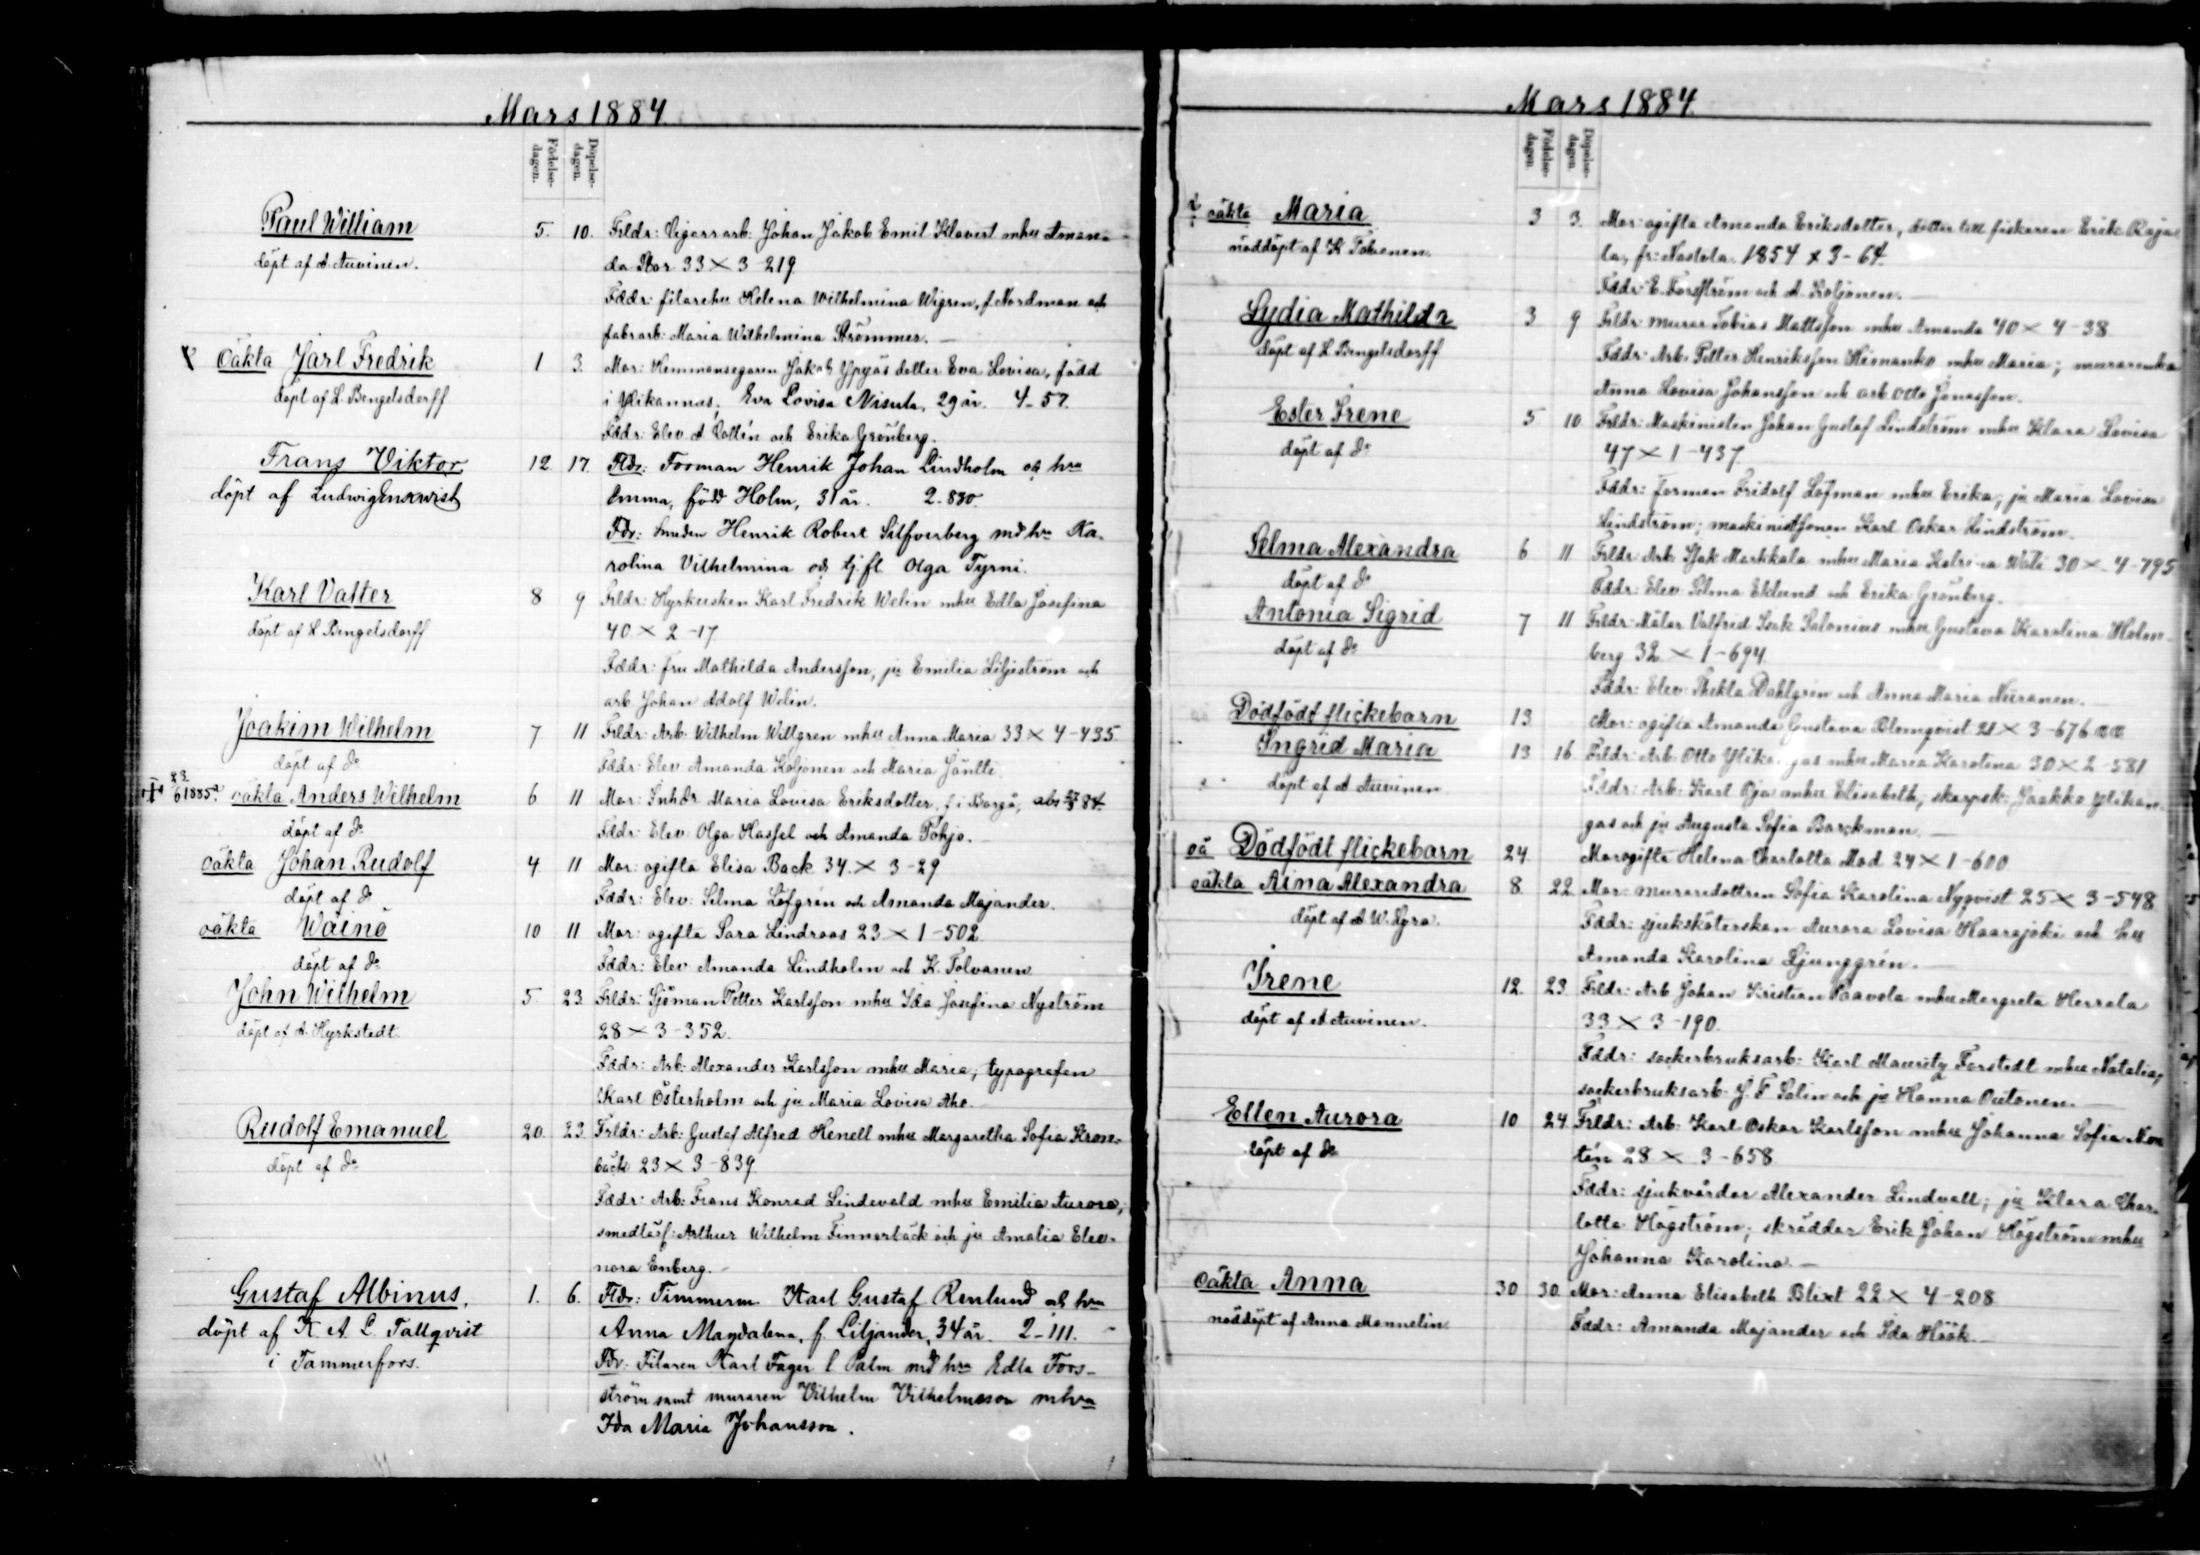 Mars 1884
Födelse-dagen.
Döpelse-dagen.
Paul William 5. 10. Frldr: Cigarrarb: Johan Jakob Emil Klavert mhu Aman-
döpt af A Auvinen. da Stor 33 × 3-219
Fddr: filarehu Helena Wilhelmina Wigren, f. Nordman och
fabrarb: Maria Wilhelmina Strömmer. —
Oäkta Jarl Fredrik 1 3. Mor: Hemmansegaren Jakob Ypyäs dotter Eva Lovisa, född
döpt af L. Bengelsdorff i Ylikannus, Eva Lovisa Nisula, 29 år. 4-57.
Fddr: Elev. A Dallén och Erika Grönberg.
Frans Viktor 12. 17. Fldr: Forman Henrik Johan Lindholm och hru
döpt af Ludwig Enqwist Emma, född Holm, 31 år. 2-830.
Fdr: Smeden Henrik Robert Silfverberg md hru Ka-
rolina Vilhelmina och tj.fl. Olga Tyrni.
Karl Valter 8 9 Frldr: Hyrkusken Karl Fredrik Welin mhu Edla Josefina
döpt af L Bengelsdorff 40 × 2-17
Fddr: fru Mathilda Andersson, ju Emilia Liljeström och
arb. Johan Adolf Welin.
Joakim Wilhelm 7 11 Frldr: Arb. Wilhelm Willgren mhu Anna Maria 33 × 4-435.
döpt af do Fddr: Elev. Amanda Koljonen och Maria Jäntti
23/6 1885. oäkta Anders Wilhelm 6 11 Mor: Inhdr Maria Lovisa Eriksdotter, f i Borgå,
döpt af do Fddr: Elev: Olga Hassel och Amanda Pohjo.
oäkta Johan Rudolf 4 11 Mor: ogifta Elisa Back 34. × 3-29
döpt af do Fddr: Elev: Selma Löfgrén och Amanda Majander.
oäkta Wäinö 10 11 Mor: ogifta Sara Lindroos 23 × 1-502
döpt af do Fddr: Elev. Amanda Lindholm och K. Tolvanen
John Wilhelm 5. 23. Frldr: Sjöman Petter Karlsson mhu Ida Josefina Nyström
döpt af A. Hyrkstedt. 28 × 3-352.
Fddr: Arb: Alexander Karlsson mhu Maria; typografen
Karl Österholm och ju Maria Lovisa Aho.
Rudolf Emanuel 20. 23. Frldr: Arb: Gustaf Alfred Henell mhu Margaretha Sofia Kron-
döpt af do bäck 23 × 3-839.
Fddr: Arb: Frans Konrad Lindevald mhu Emilia Aurora;
smedläsf: Arthur Wilhelm Finnerbäck och ju Amalia Eleo-
nora Enberg.
Gustaf Albinus. 1. 6. Fldr: Timmerm. Karl Gustaf Renlund och hru
döpt af K A L Tallqvist Anna Magdalena, f. Liljander, 34 år. 2-111.
i Tammerfors. Fdr: Filaren Karl Fager l Palm md hru Edla Fors-
ström samt muraren Vilhelm Vilhelmsson mhru
Ida Maria Johansson.
Mars 1884.
Födelse-dagen.
Döpelse-dagen.
oäkta Maria 3 3. Mor: ogifta Amanda Eriksdotter, dotter till fiskaren Erik Raja-
nöddöpt af K Tohonen. la, fr: Nastola. 1854 × 3-64.
Fddr: E. Forsström och A. Koljonen. —
Lydia Mathilda 3 9 Frldr: murar Tobias Mattsson mhu Amanda 40 × 4-38
döpt af L Bengelsdorff Fddr: Arb. Petter Henriksson Heimanko mhu Maria; murarenka
Anna Lovisa Johansson och arb. Otto Jonasson.
Ester Irene 5 10 Frldr: Maskinisten Johan Gustaf Lindström mhu Klara Lovisa
döpt af do 47 × 1-437
Fddr: forman Fridolf Löfman mhu Erika; ju Maria Lovisa
Lindström; maskinistsonen Karl Oskar Lindström.
Selma Alexandra 6 11 Frldr: Arb. Isak Markkala mhu Maria Katrina 30 × 4-795
döpt af do Fddr: Elev. Selma Eklund och Erika Grönberg.
Antonia Sigrid 7 11 Frldr: Målar Valfrid Isak Salonius mhu Gustava Karolina Holm-
döpt af do berg 32 × 1-694
Fddr: Elev: Thekla Dahlgrén och Anna Maria Niiranen.
Dödfödt flickebarn 13 Mor: ogifta Amanda Gustava Blomqvist 21 × 3-676
Ingrid Maria 13 16 Frldr: Arb. Otto mhu Maria Karolina 30 × 2-581
döpt af A Auvinen Fddr: Arb: Karl Oja mhu Elisabeth; skarpsk: Jaakko Ylikan-
gas och ju Augusta Sofia Barckman. —
oä Dödfödt flickebarn 24 Mor ogifta Helena Charlotta Mod 24 × 1-600
oäkta Aina Alexandra 8 22. Mor: muraredottren Sofia Karolina Nyqvist 25 × 3-548
döpt af A W. Lyra. Fddr: sjuksköterskan Aurora Lovisa Haarajoki och hu
Amanda Karolina Ljunggrén. —
Irene 12. 23. Frldr: Arb Johan Kristian Paavola mhu Margreta Herrala
döpt af A Auvinen. 33 × 3-190.
Fddr: sockerbruksarb: Karl Mauritz Forstedt mhu Natalia;
sockerbruksarb. J. F Salin och ju Hanna Outonen. —
Ellen Aurora 10 24. Frldr: Arb. Karl Oskar Karlsson mhu Johanna Sofia Nor-
döpt af do tén 28 × 3-658
Fddr: sjukvårdar Alexander Lindvall; ju Klara Char-
lotta Högström; skräddar Erik Johan Högström mhu
Johanna Karolina —
Oäkta Anna 30 30. Mor: Anna Elisabeth Blixt 22 × 4-208
nöddöpt af Anna Mannelin Fddr: Amanda Majander och Ida Höök. —